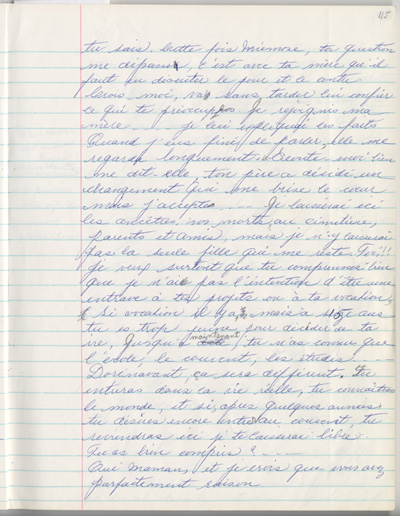 115
tu sais. Cette fois Mimose, ta question
me dépasse, c'est avec ta mère qu'il
faut en discuter le pour et le contre
Crois-moi, va sans tarder lui confier
ce qui te préoccupe. Je rejoignis ma
mère - - - je lui expliquai les faits
Quand j'eus fini de parler, elle me
regarda longuement. Ecoute-moi bien
me dit-elle, ton père a décidé un
changement qui me brise le cœur
mais j'accepte - - - Je laisserai ici
les ancêtres, nos morts, au cimetière,
parents et amis, mais je n'y laisserai
pas la seule fille qui me reste Toi!!
je veux surtout que tu comprennes bien
que je n'ai pas l'intention d'être une
entrave à tes projets ou à ta vocation,
Si vocation il y a, mais à 15 ans
tu es trop jeune, pour décider de ta
vie, jusqu'à maintenant, tu n'as connu que
l'école, le couvent, les études - - -
Dorénavant, ça sera différent. Tu
entreras dans la vie réelle, tu connaîtras
le monde, et si, après quelques années
tu désires encore entrer au couvent, tu
reviendras ici je te laisserai libre.
Tu as bien compris? - - - -
Oui Maman, et je crois que vous avez
parfaitement raison